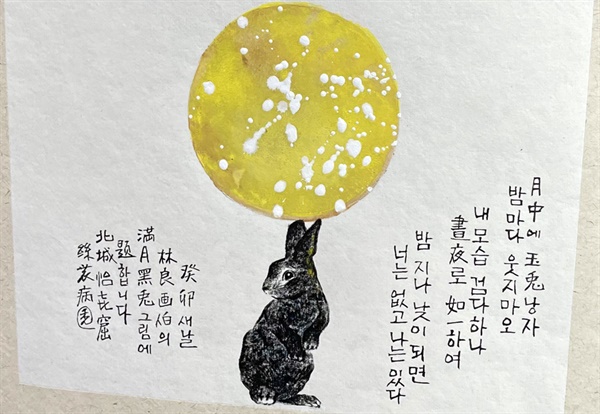 月中에 玉兎낭자
밤마다 웃지마오
내모습 검다하나
晝夜로 如一하여
밤 지나 낮이 되면
너는 없고 나는 있다
癸卯 새날
林良画伯의
満月黑兎 그림에
題합니다
北城 怡㐂窟
病園